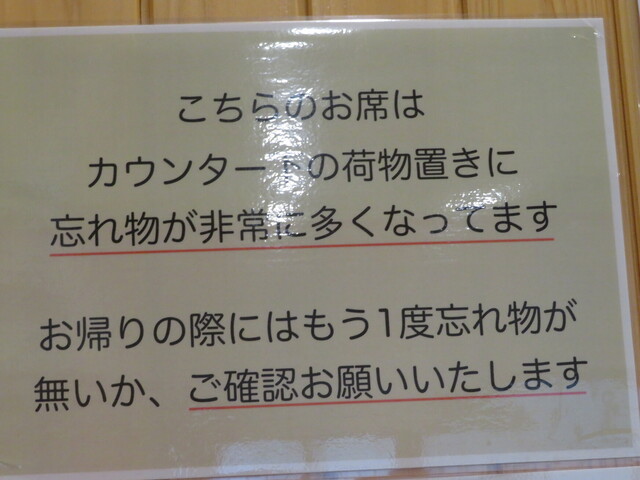 こちらのお席は
カウンター下の荷物置きに
忘れ物が非常に多くなってます
お帰りの際にはもう1度忘れ物が
無いか、ご確認お願いいたします